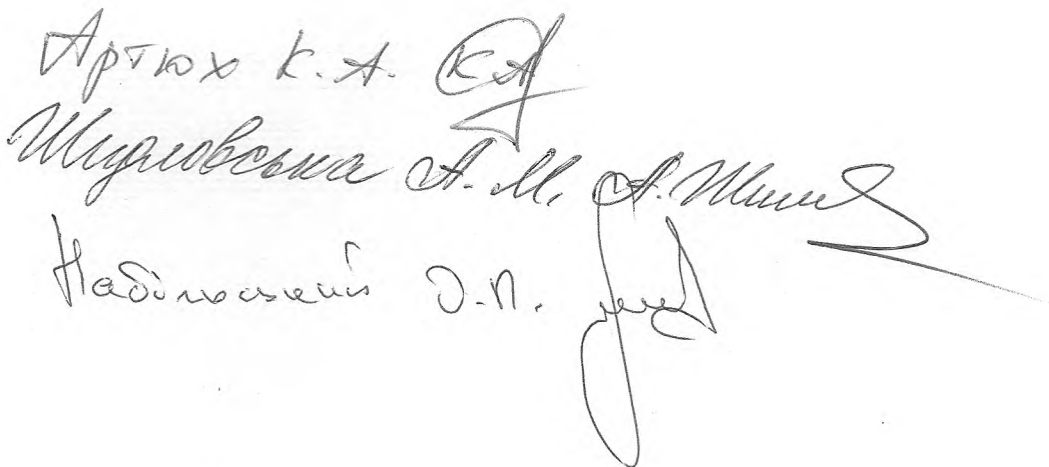 Артюх К.А. КА
Шидловська А.М. А.Ши
Набільський О.П.